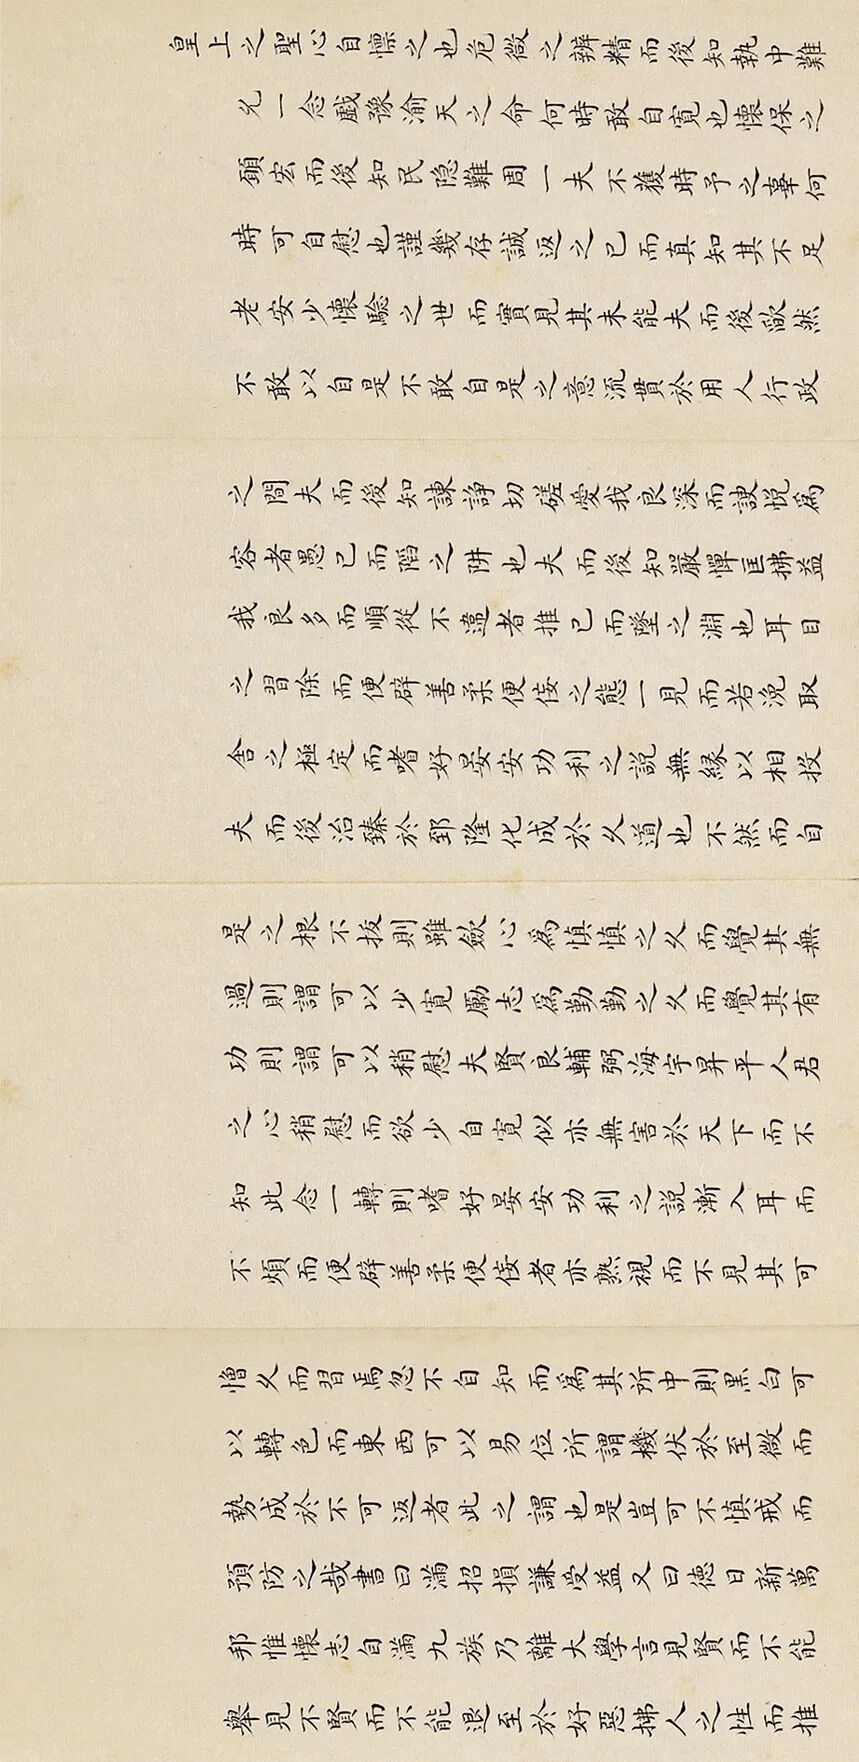 皇上之聖心自懍之也危微之辨精而後知執中難
允一念戲豫渝天之命何時敢自寬也懷保之
願宏而後知民隱難周一夫不獲時予之辜何
時可自慰也謹幾存誠返之己而真知其不足
老安少懷驗之世而實見其未能夫而後欿然
不敢以自是不敢自是之意流貫於用人行政
之間夫而後知諫諍切磋愛我良深而諛悅為
容者愚己而陷之阱也夫而後知嚴憚匡拂益
我良多而順從不違者推己而墜之淵也耳目
之習除而便辟善柔便佞之態一見而若浼取
舍之極定而嗜好晏安功利之說無緣以相投
夫而後治臻於郅隆化成於久道也不然而自
是之根不拔則雖斂心為慎慎之久而覺其無
過則謂可以少寬勵志為勤勤之久而覺其有
功則謂可以稍慰夫賢良輔弼海宇昇平人君
之心稍慰而欲少自寬似亦無害於天下而不
知此念一轉則嗜好晏安功利之說漸入耳而
不煩而便辟善柔便佞者亦熟視而不見其可
憎久而習焉忽不自知而為其所中則黑白可
以轉色而東西可以易位所謂機伏於至微而
勢成於不可返者此之謂也是豈可不慎戒而
預防之哉書曰滿招損謙受益又曰德日新萬
邦惟懷志自滿九族乃離大學言見賢而不能
舉見不賢而不能退至於好惡拂人之性而推